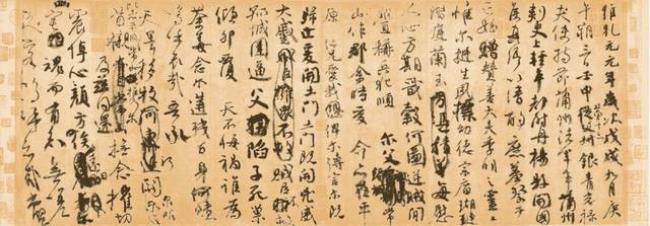 維乾元元年歲次戊戌九月庚
午朔三日壬申第十三叔銀青光祿
夫使持節蒲州諸軍事蒲州
刺史上輕車都尉丹楊縣開國
侯真卿以清酌庶羞祭于
亡姪贈贊善大夫季明之靈曰
惟爾挺生夙標幼德宗廟瑚璉
階庭蘭玉每慰
人心方期戩穀何圖逆賊間
釁稱兵犯順爾父竭誠常
山作郡余時受命亦在平
原仁兄愛我俾爾傳言爾既
歸止爰開土門土門既開凶威
大蹙賊臣不救
孤城圍逼父陷子死巢
傾卵覆天不悔禍誰為
荼毒念爾遘殘百身何贖
嗚呼哀哉吾承
天澤移牧河關
首櫬及茲同還撫念摧切
震悼心顏方俟
幽宅魂而有知無嗟
久客嗚呼哀哉尚饗